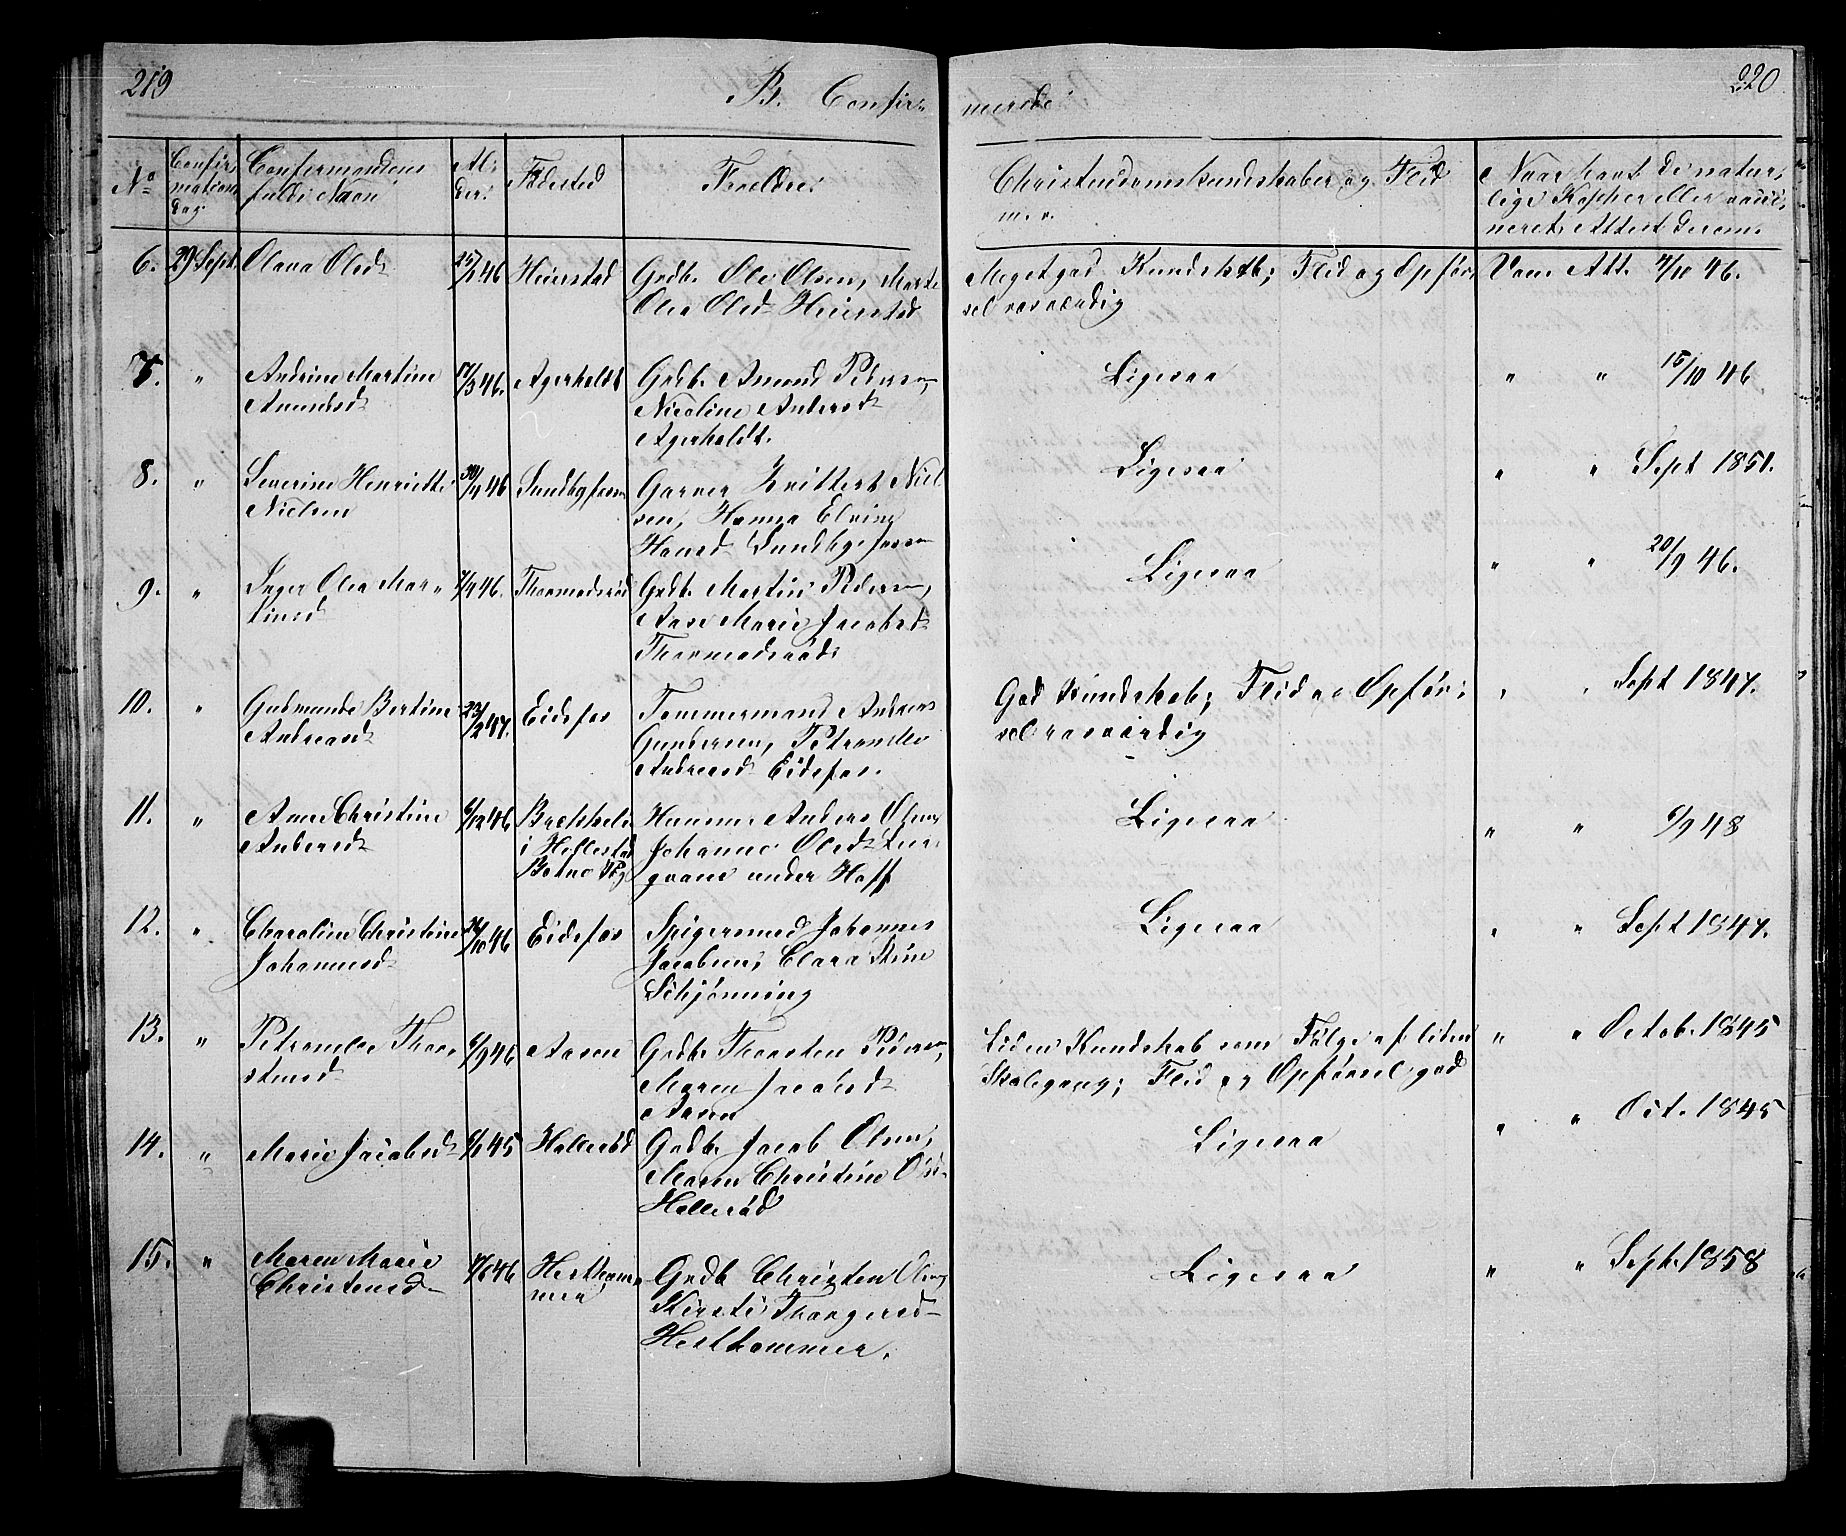 219
B. Confir-
merede
220
No
Confir-
mations
Dag.
Confirmandens
fulde Navn
Al-
der.
Fødested
Forældre
Christendomskundskaber og Flid
m. v.
Naar havt de natur-
lige Kopper eller vacci-
neret, Attest derom.
6. 29 Sept. Olava Olsd. 46 Heierstad Grdb. Ole Olsen, Marte
Olea Olsd. Heierstad
Meget god Kundskab; Flid og Opfør-
sel rosværdig
Vac. Att. 7/10 46.
7. " Andrine Martine
Amundsd.
46. Agerholdt Grdb. Amund Peders
Nicoline Andersd.
Agerholdt.
Ligesaa " " 15/10 46
8. " Severine Henriette
Nielsen
30/4 46 Sundbyfoss Garver Niel-
sen, Hanna Elvine
Hansd. Sundbyfoss
Ligesaa " " Sept 1851.
9. " Inger Olea Mar-
tinsd.
46. Thormodsrød Grdb. Martin Peders,
Aase Marie Jacobsd.
Thormodsrød
Ligesaa " " 20/9 46.
10. " Gudmunda Bertine
Andreasd.
23/2 47. Eidsfos Tømmermand Andreas
Gundersen, Petronelle
Andreasd. Eidsfos.
God Kundskab; Flid og Opfør-
sel rosværdig
" " Sept 1847.
11. " Anne Christine
Andersd.
6/12 46
i
Anders Ols
Johanne Olsd.
under Hoff
Ligesaa " " 6/9 48
12. " Charoline Christine
Johannesd.
10 46 Eidsfos Spigersmed Johannes
Jacobsen, Clara Stine
Schjønning
Ligesaa " " Sept 1847.
13. " Petronelle Thor-
stensd.
6/9 46 Aasen Grdb. Thorsten Peders,
Maren Jacobsd.
Aasen
Liden Kundskab som Følge af liden
Skolegang; Flid og Opførsel god
" " Octob. 1845
14. " Marie Jacobsd. 45 Hallerød Grdb. Jacob Olsen,
Maren Christine Olsd.
Hallerød
Ligesaa " " Oct. 1845
15. " Maren Marie
Christensd.
46 Hestham-
mer
Grdb. Christen Ols
Kirsti Thorgersd.
Hesthammer.
Ligesaa " " Sept. 1858